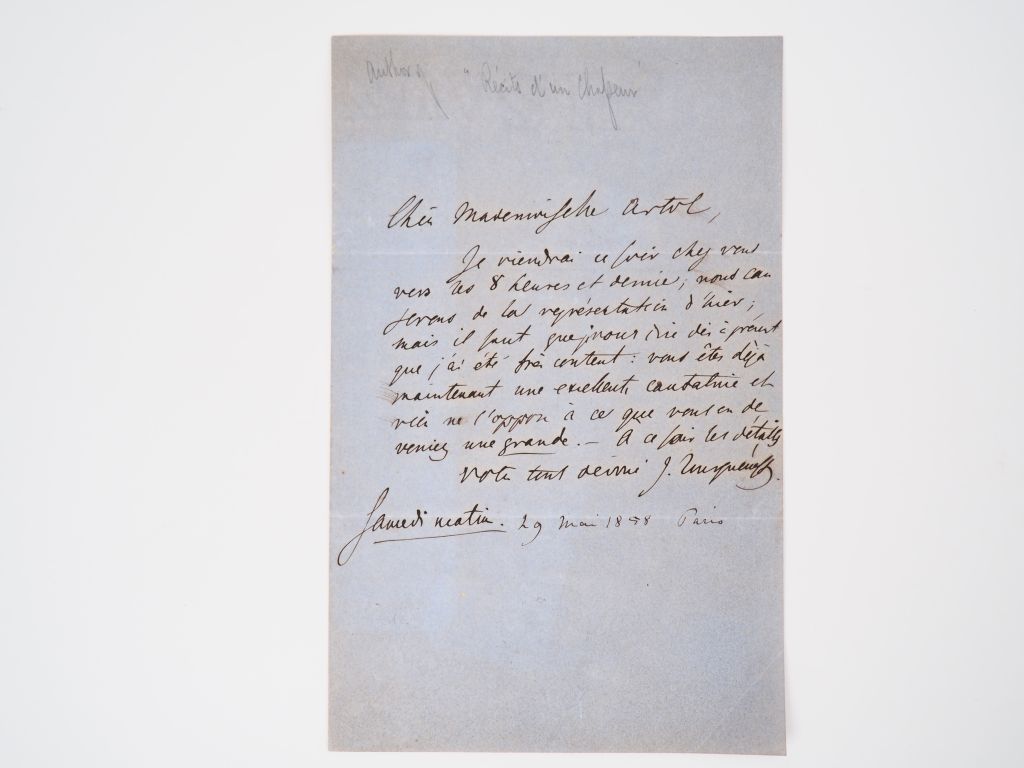 Author of "Récits d'un Chasseur"
Chère Mademoiselle Artôt,
Je viendrai ce soir chez vous
vers les 8 heures et demie; nous cau
serons de la représentation d'hier;
mais il faut que je vous dise dès à présent
que j'ai été très content: vous êtes déjà
maintenant une excellente cantatrice et
rien ne s'oppose à ce que vous en de
veniez une grande. — A ce soir les détails
Votre tout dévoué J. Tourguéneff.
Samedi matin. 29 Mai 1858 Paris